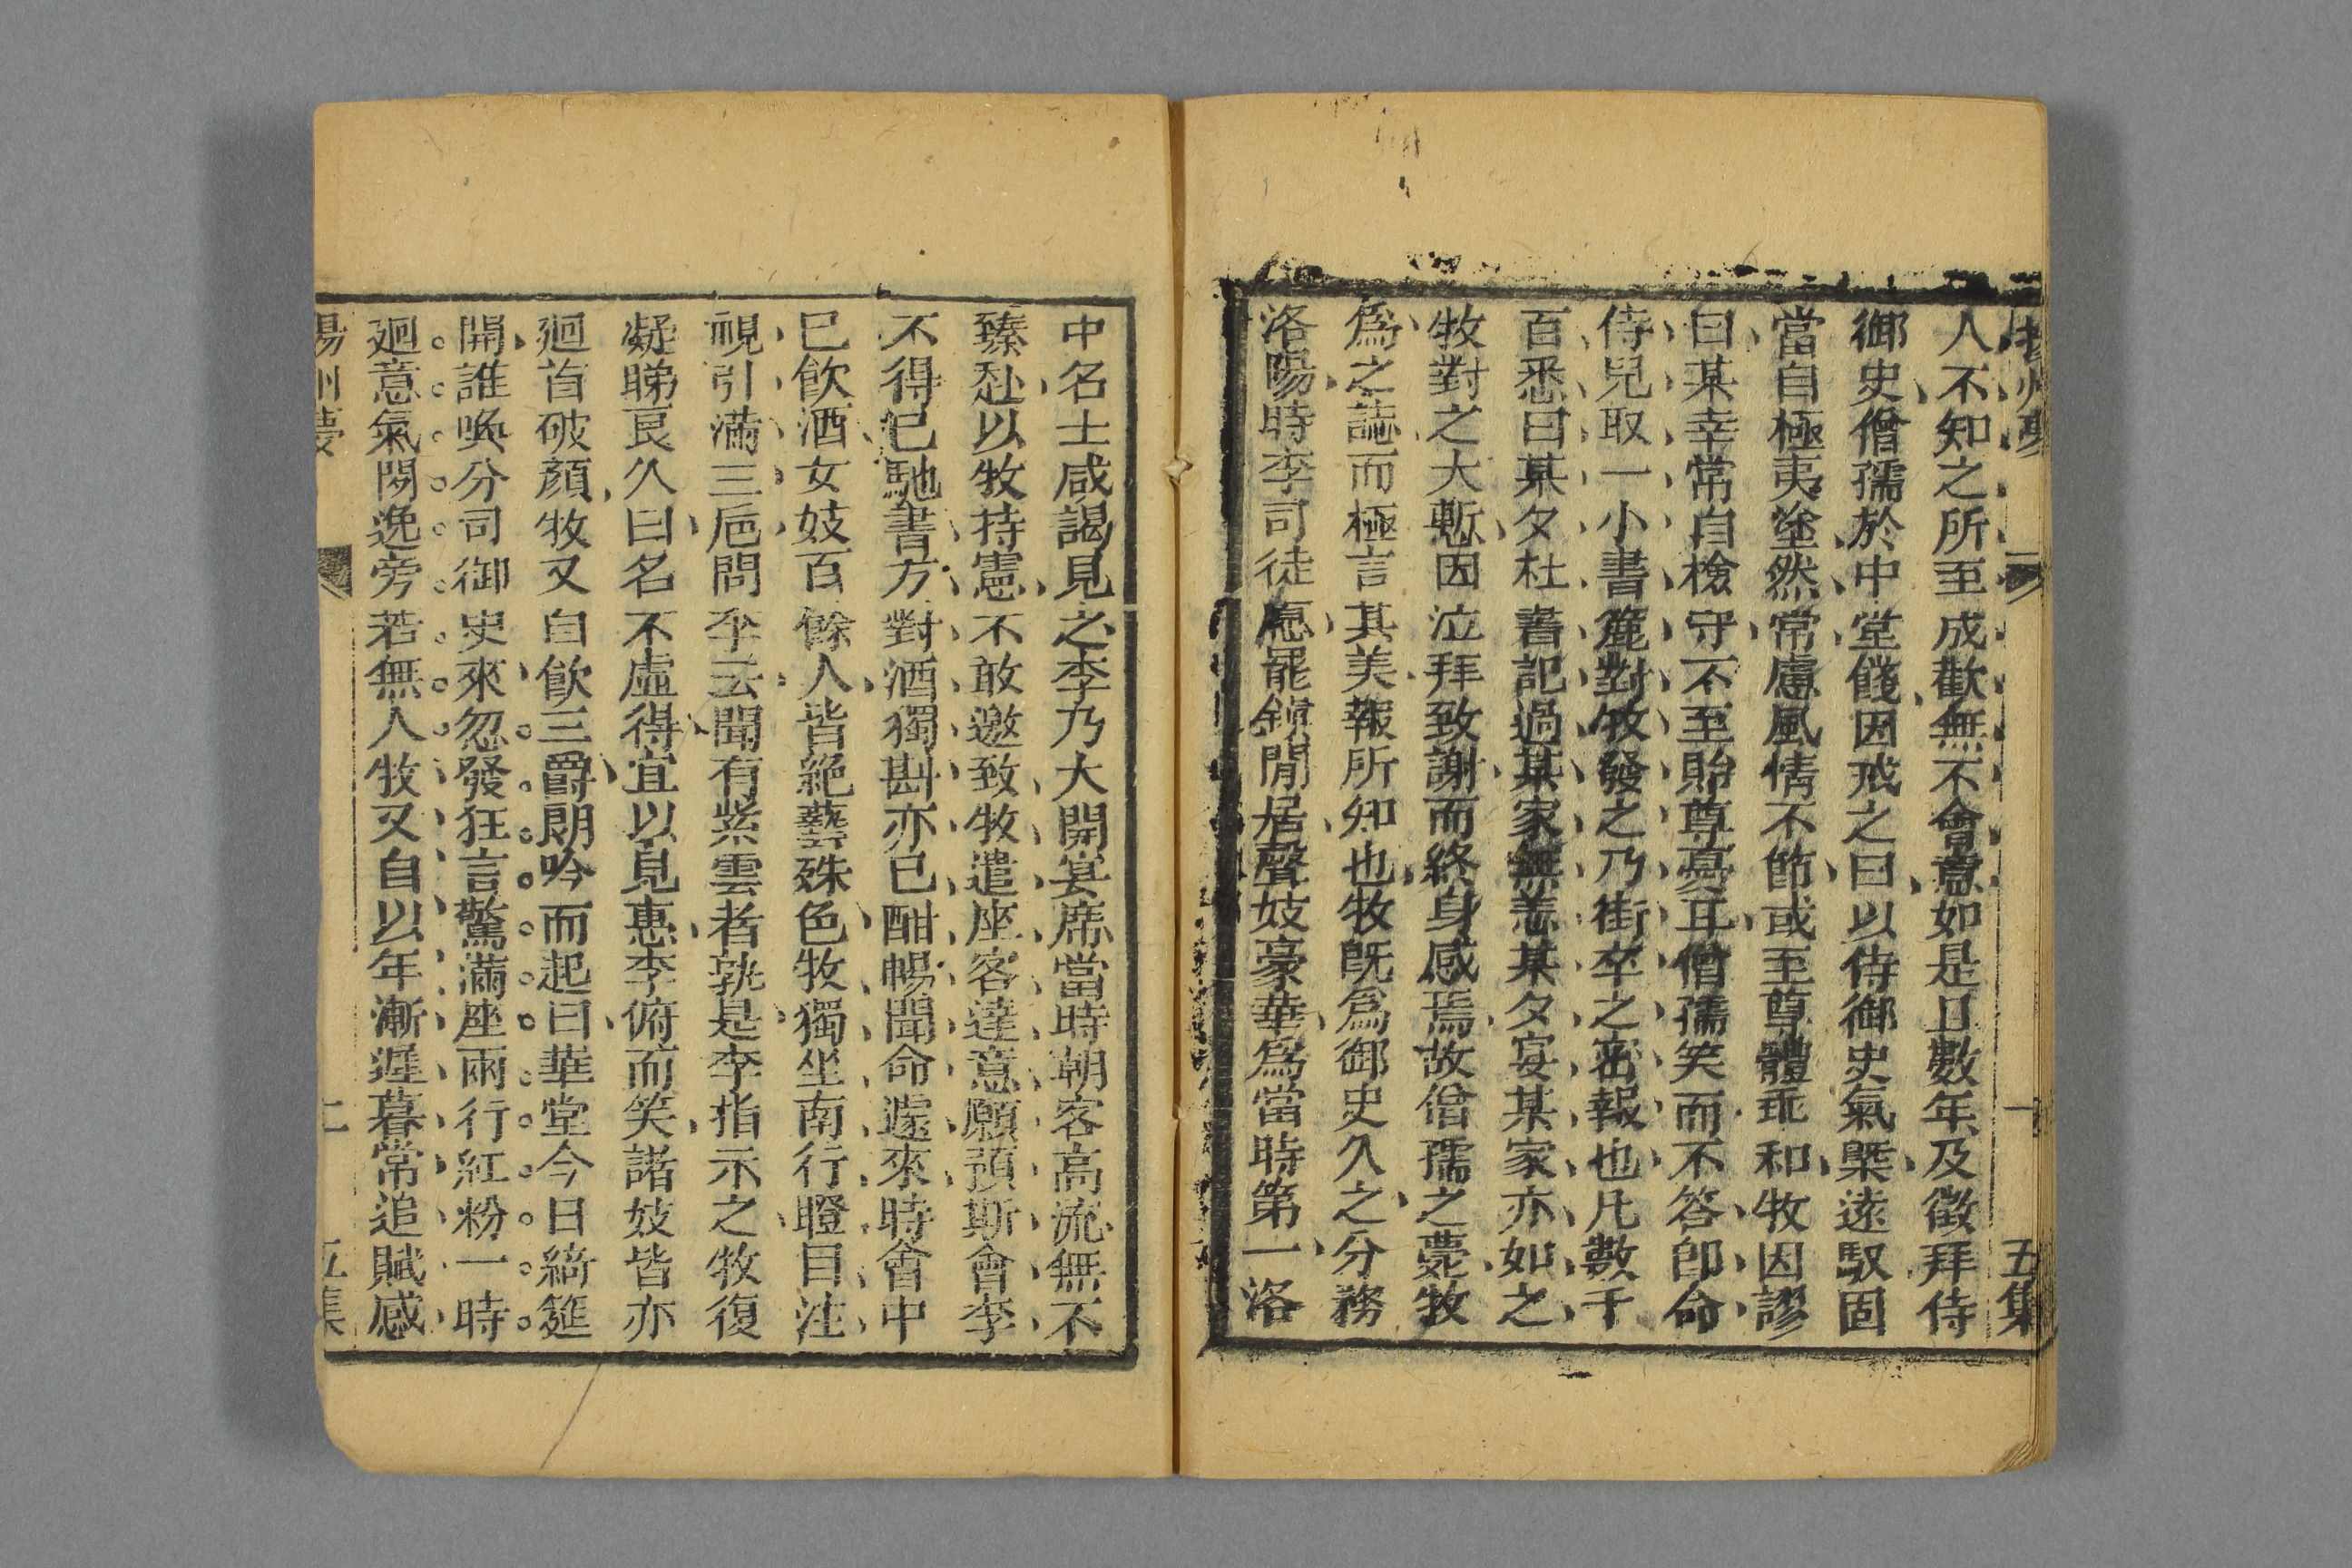 揚州夢 一 五集
人不知之所至成歡無不會意如是且數年及徵拜侍
御史僧孺於中堂餞因戒之曰以侍御史氣槩遠馭固
當自極夷塗然常慮風情不節或至尊體乖和牧因謬
曰某幸常自檢守不至貽尊憂耳僧孺笑而不答卽命
侍兒取一小書簏對牧發之乃街卒之密報也凡數千
百悉曰某夕杜書記過某家無恙某夕宴某家亦如之
牧對之大慙因泣拜致謝而終身感焉故僧孺之薨牧
爲之誌而極言其美報所知也牧既爲御史久之分務
洛陽時李司徒愿罷鎮閒居聲妓豪華爲當時第一洛
中名士咸謁見之李乃大開宴席當時朝客高流無不
臻赴以牧持憲不敢邀致牧遣座客達意願預斯會李
不得已馳書方對酒獨斟亦已酣暢聞命遽來時會中
已飲酒女妓百餘人皆絶藝殊色牧獨坐南行瞪目注
視引滿三巵問李云聞有紫雲者孰是李指示之牧復
凝睇良久曰名不虛得宜以見惠李俯而笑諸妓皆亦
廻首破顏牧又自飲三爵朗吟而起曰華堂今日綺筵
開誰喚分司御史來忽發狂言驚滿座兩行紅粉一時
廻意氣閒逸旁若無人牧又自以年漸遲暮常追賦感
揚州夢 二 五集